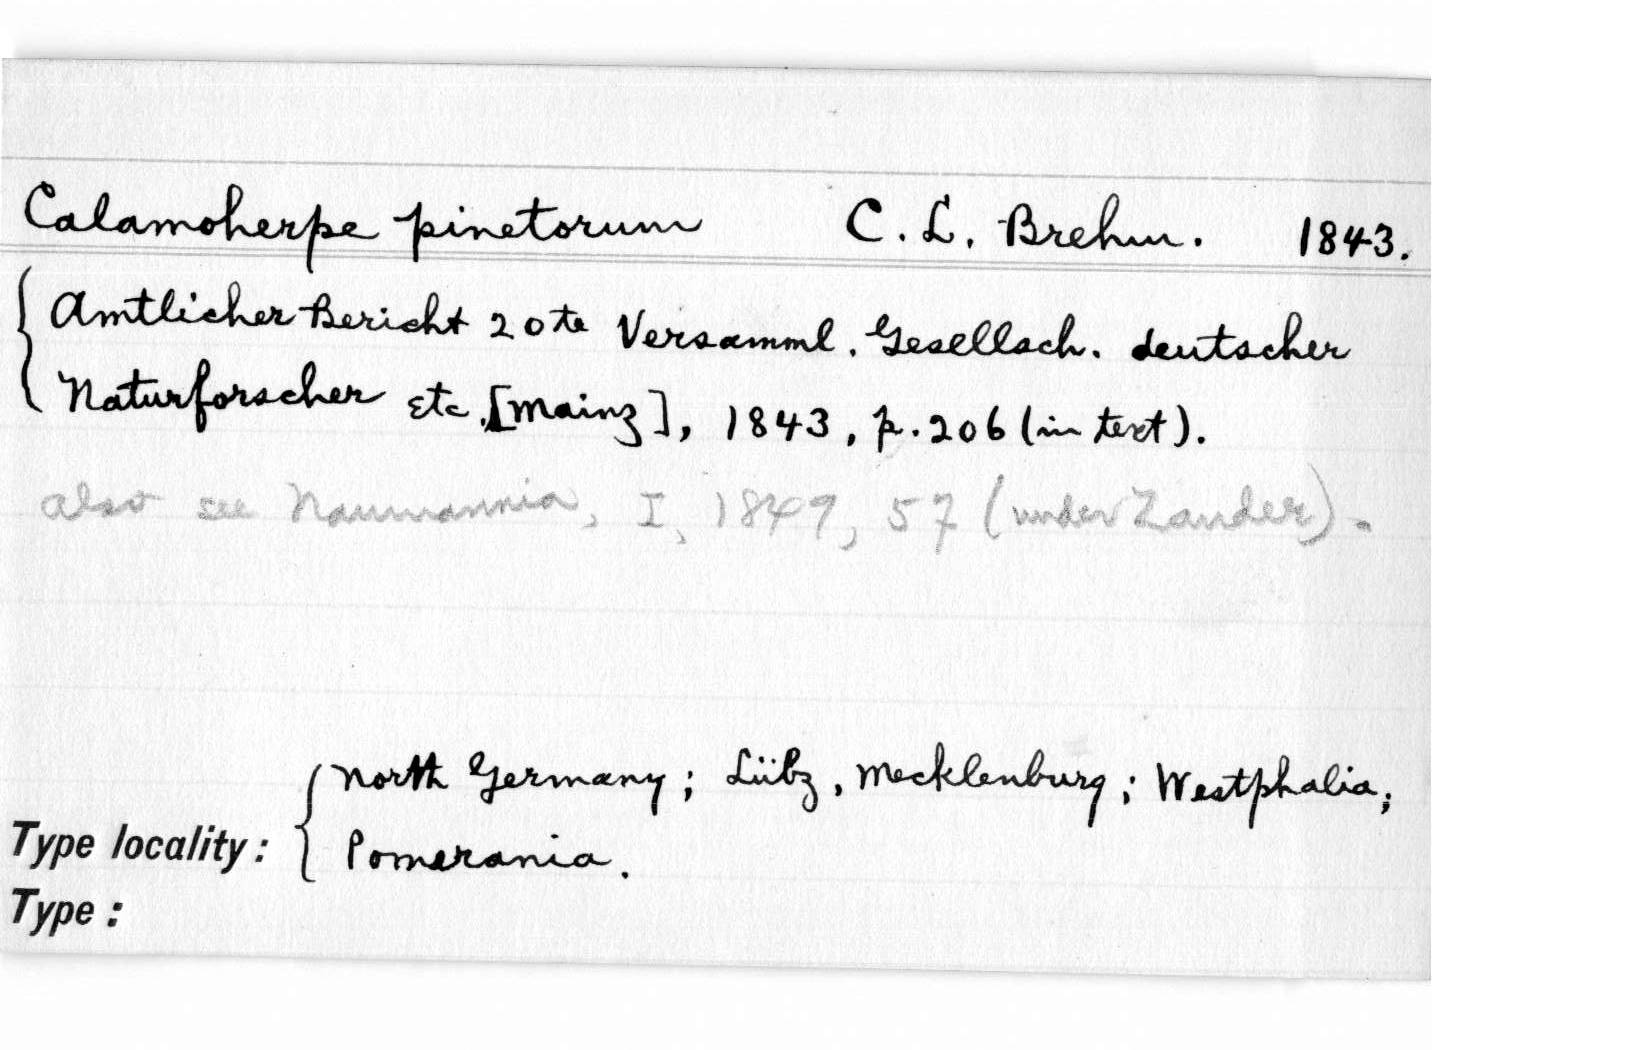 Calamoherpe pinetorum C. L. Brehm. 1843.
Amtlicher Bericht 20te Versamml. Gesellsch. deutscher
Naturforscher etc. [Mainz], 1843, p. 206 (in text).
also see Naumannia, I, 1849, 57 (under Zander).
North Germany; Lübz, Mecklenburg; Westphalia;
Type locality: Pomerania.
Type: